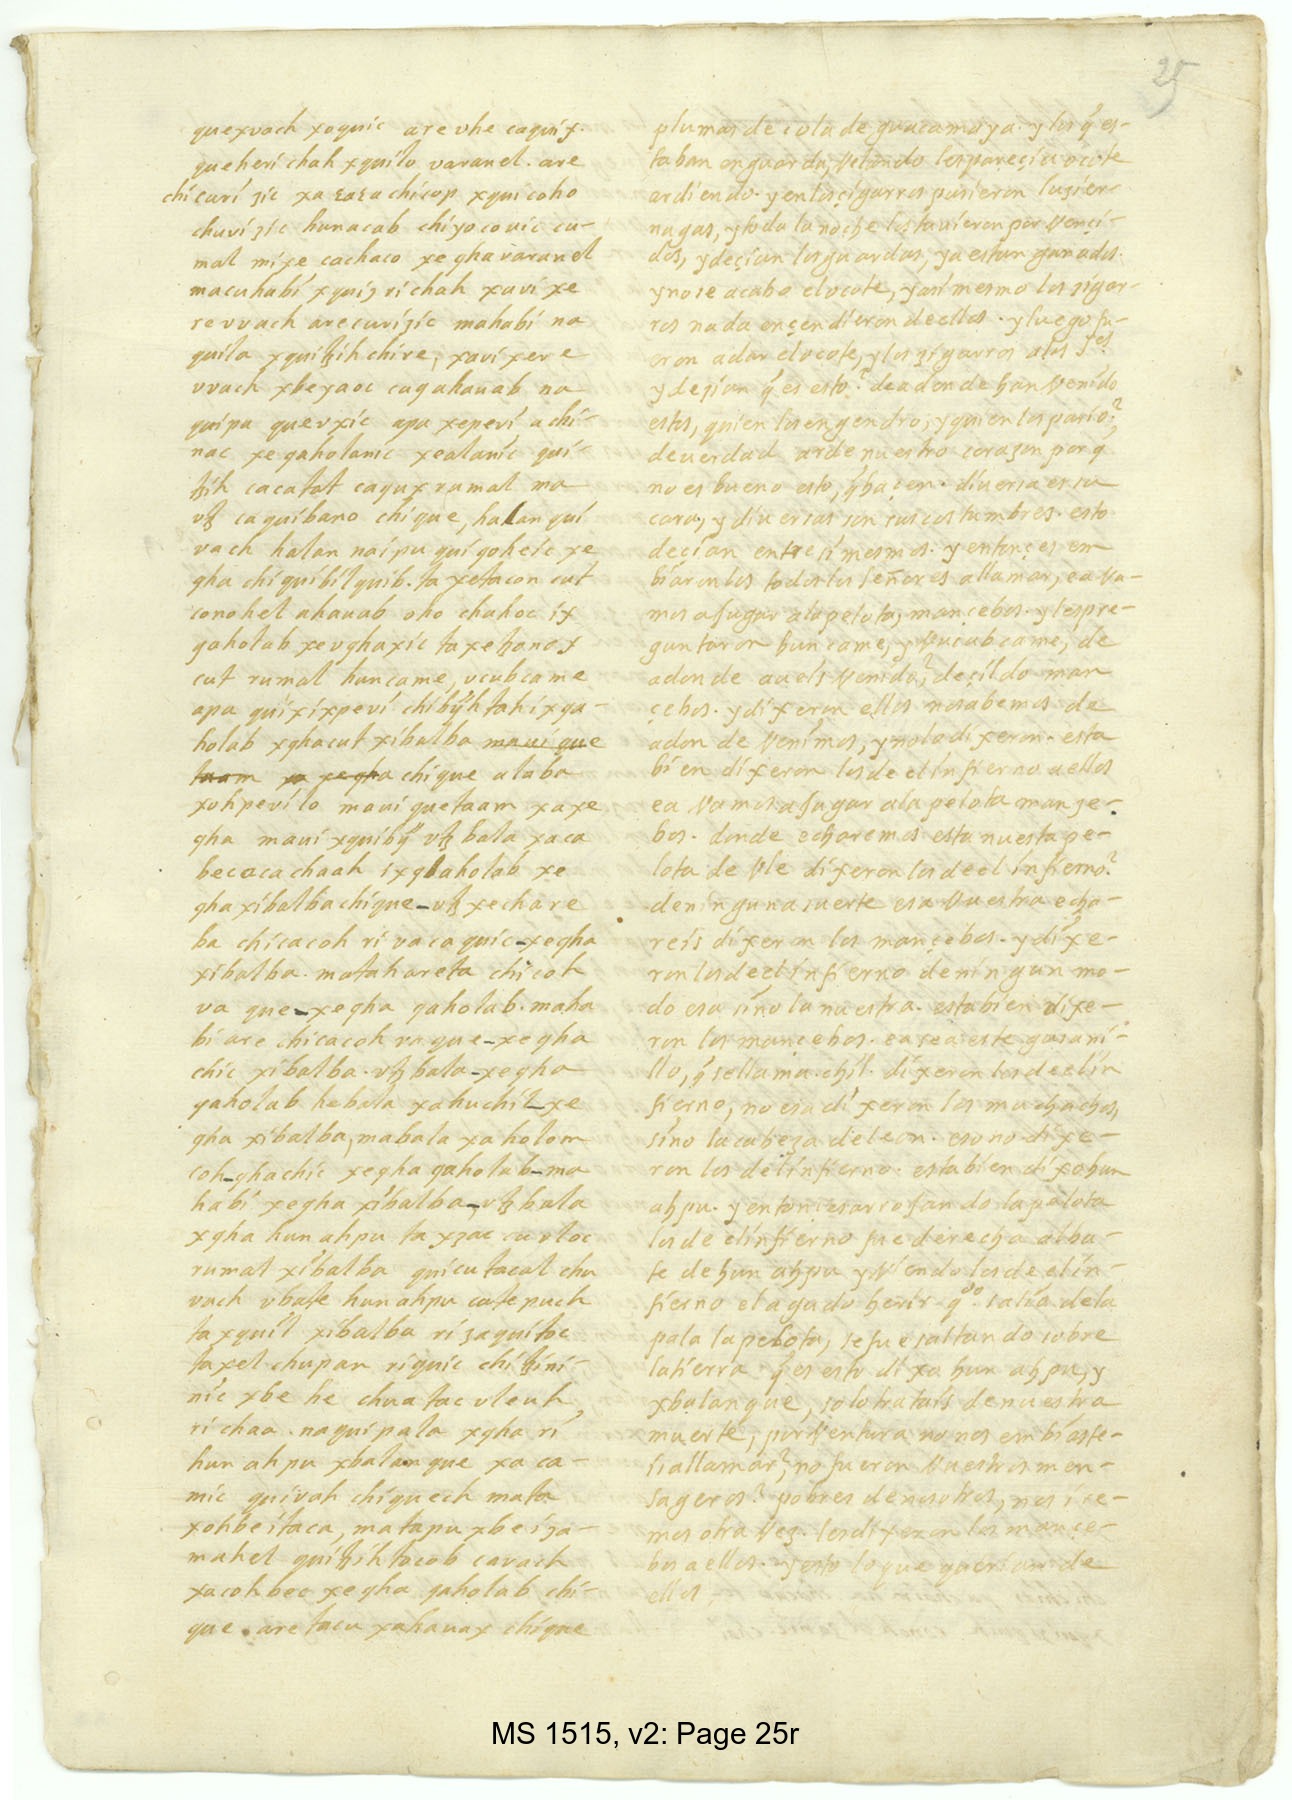 25
quexvach xoquic are vhe caquix.
queheri chah xquilo varanel. are
chi curi zic xa cacachicop xquicoho
chuvi zic hunacab chiyocovic cu-
mal mixe cachaco xe gha varanel
macuhabi xquiz ri chah xavi xe
re vvach are curi zic mahabi na
quila xquitzih chire, xavi xere
vvach xbeyaoc cuq ahauab na
quipa quevxic apa xepevi achi-
nac xe gaholanic xealanic qui-
tzih cacatat caqux rumal ma
vtz caquibano chique, halan qui
vach halan naipu qui qoheic xe
gha chiquibil quib. ta xetacon cut
conohel ahauab oho chahoc ix
gaholab xevghaxic ta xetzonox
cut rumal huncame, vcubcame
apa quixixpevi chibijh tah ix ga-
holab xghacut xibalba maui que
taam xa xegha chique alaba
xohpevi lo maui quetaam xaxe
gha maui xquibij vtz bala xaca
becaca chaah ix gaholab xe
gha xibalba chique_vtz xechare
ba chicacoh ri va ca quic_xegha
xibalba. matahareta chicoh
va que_xegha gaholab. maha
bi are chicacoh va que_xegha
chic xibalba. vtz bala_xegha
gaholab hebala xahuchil_xe
gha xibalba, mabala xa holom
coh_gha chic xegha gaholab_ma
habi xegha xibalba_vtz bala
xgha hun ahpu ta xzac cu vloc
rumal xibalba quicu tacal chu
vach vbate hun ahpu cate puch
ta xquil xibalba ri zaquitoc
ta xel chupan ri quic chitzini-
nic xbe he chuatac vleuh
ri chaa. naquipala xgha ri
hun ahpu xbalanque xa ca-
mic quivah chiquech mata
xohbeitaca, matapu xbe iza-
mahel quitzih tocob cavach
xacohbec xegha gaholab chi-
que. aretacu xahauax chique
plumas de cola de guacamaya. y los q̃ es-
taban en guarda, velando les pareçia ocote
ardiendo. y en los çigarros pusieron luzier-
nagas, y toda la noche los tuvieron por vençi-
dos, y deçian los guardas, ya estan ganados.
y no se acabo el ocote, y asi mesmo los zigar-
ros nada ençendieron de ellos. y luego fu-
eron a dar el ocote, y los zigarros a los Sres
y dezian q̃ es esto? de adonde han venido
estos, quien los engendro, y quien los pario?
de verdad arde nuestro corazon por q̃
no es bueno esto, q̃ haçen. diversa es su
cara, y diversas son sus costumbres. esto
deçian entre si mesmos. y entonçes em
biaronlos todos los señores a llamar, ea va-
mos a jugar a la pelota, mançebos. y les pre-
guntaron hun came, y Vucub came, de
adonde aveis venido? deçildo man
çebos. y dixeron ellos no sabemos de
adonde venimos, y no lo dixeron. esta
bien dixeron los de el infierno a ellos
ea vamos a jugar a la pelota manze-
bos. donde echaremos esta nuesta pe-
lota de vle dixeron los de el infierno?
de ninguna suerte esa vuestra echa-
reis dixeron los mançebos. y dixe-
ron los de el infierno de ningun mo-
do esa sino la nuestra. esta bien dixe-
ron los mançebos. ea sea este gusani-
llo, q̃ se llama. chil. dixeron los de el in
fierno, no esa dixeron los muchachos,
sino la cabeza de leon. eso no dixe-
ron los del infierno. esta bien dixo hun
ahpu. y entonçes arrojando la pelota
los de el infierno fue derecha al ba-
te de hun ahpu y viendo los de el in-
fierno el agado herir qdo. salia de la
pala la pelota, se fue saltando sobre
la tierra q̃ es esto dixo hun ahpu, y
xbalanque, solo tratais de nuestra
muerte, por ventura no nos embiaste-
is a llamar? no fueron vuestros men-
sageros? pobres de nosotros, nos ire-
mos otra vez. les dixeron los mançe-
bos a ellos. y esto lo que querian de
ellos,
MS 1515, v2: Page 25r